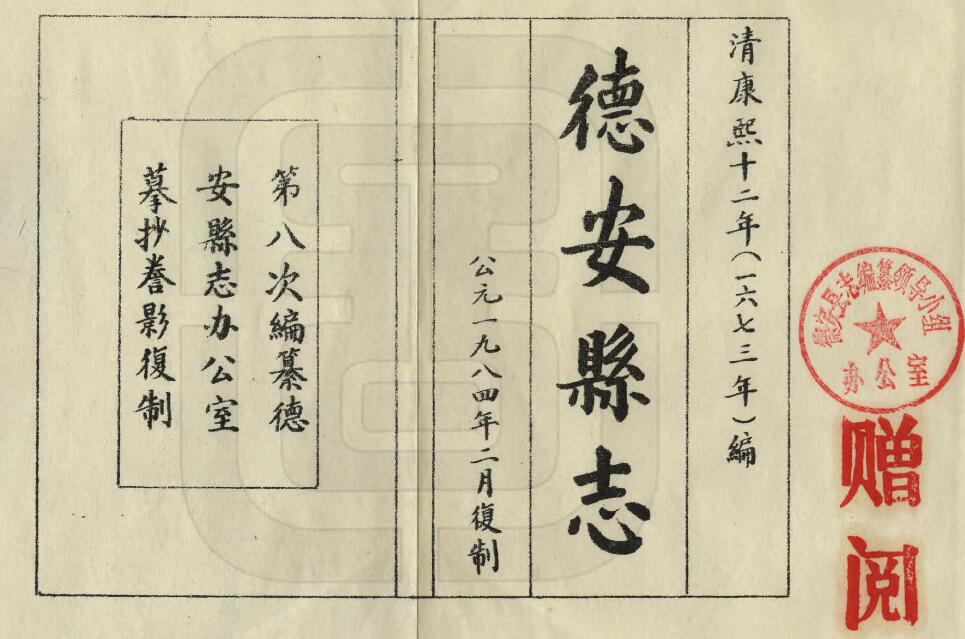 清康熙十二年(一六七三年)編
德安縣志
公元一九八四年二月復制
第八次編纂德
安縣志办公室
摹抄誊影復制
德安县志编纂领导小组
办公室
赠阅